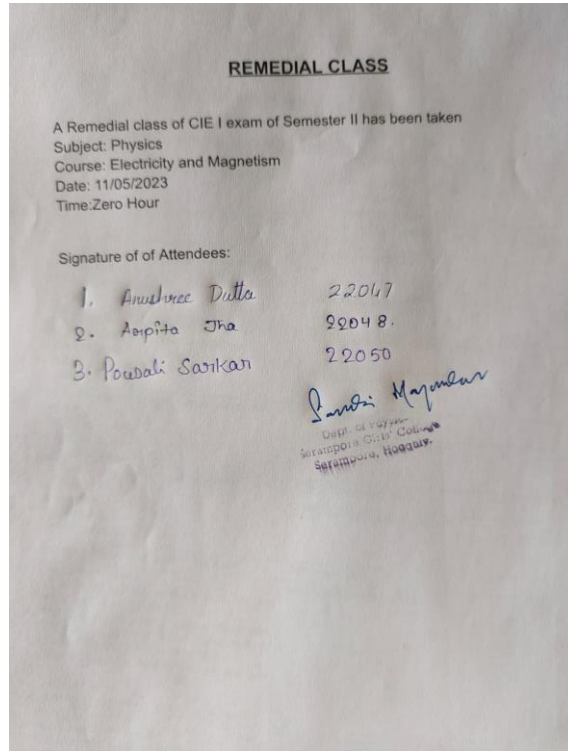 REMEDIAL CLASS
A Remedial class of CIE I exam of Semester II has been taken
Subject: Physics
Course: Electricity and Magnetism
Date: 11/05/2023
Time:Zero Hour
Signature of of Attendees:
1. Anushree Dutta 22047
2. Arpita Jha 22048.
3. Pousali Sarkar 22050
Majumdar
Dept. of
Serampore Girls' College
Serampore, Hooghly.